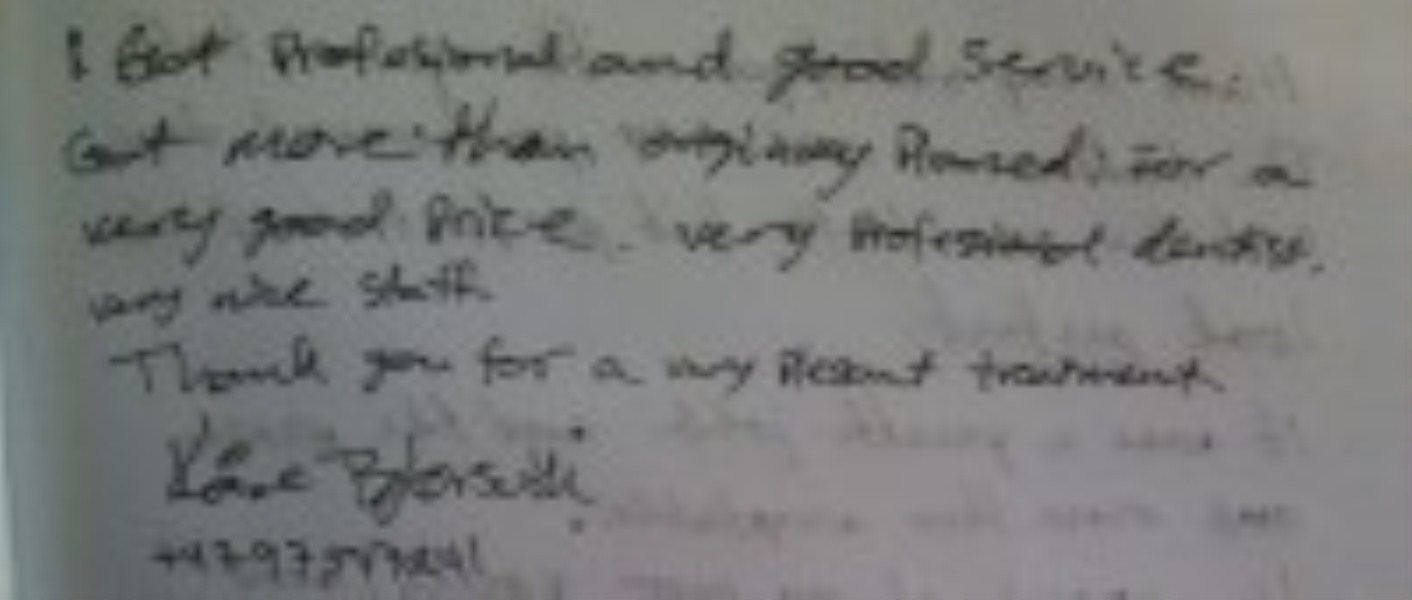 I Got Profesjonal and good Service.
Got more than orginay Planed: For a
very good Price. very Profesional dentist.
very nice staff.
Thank you for a very Plesant treatment.
Kåre